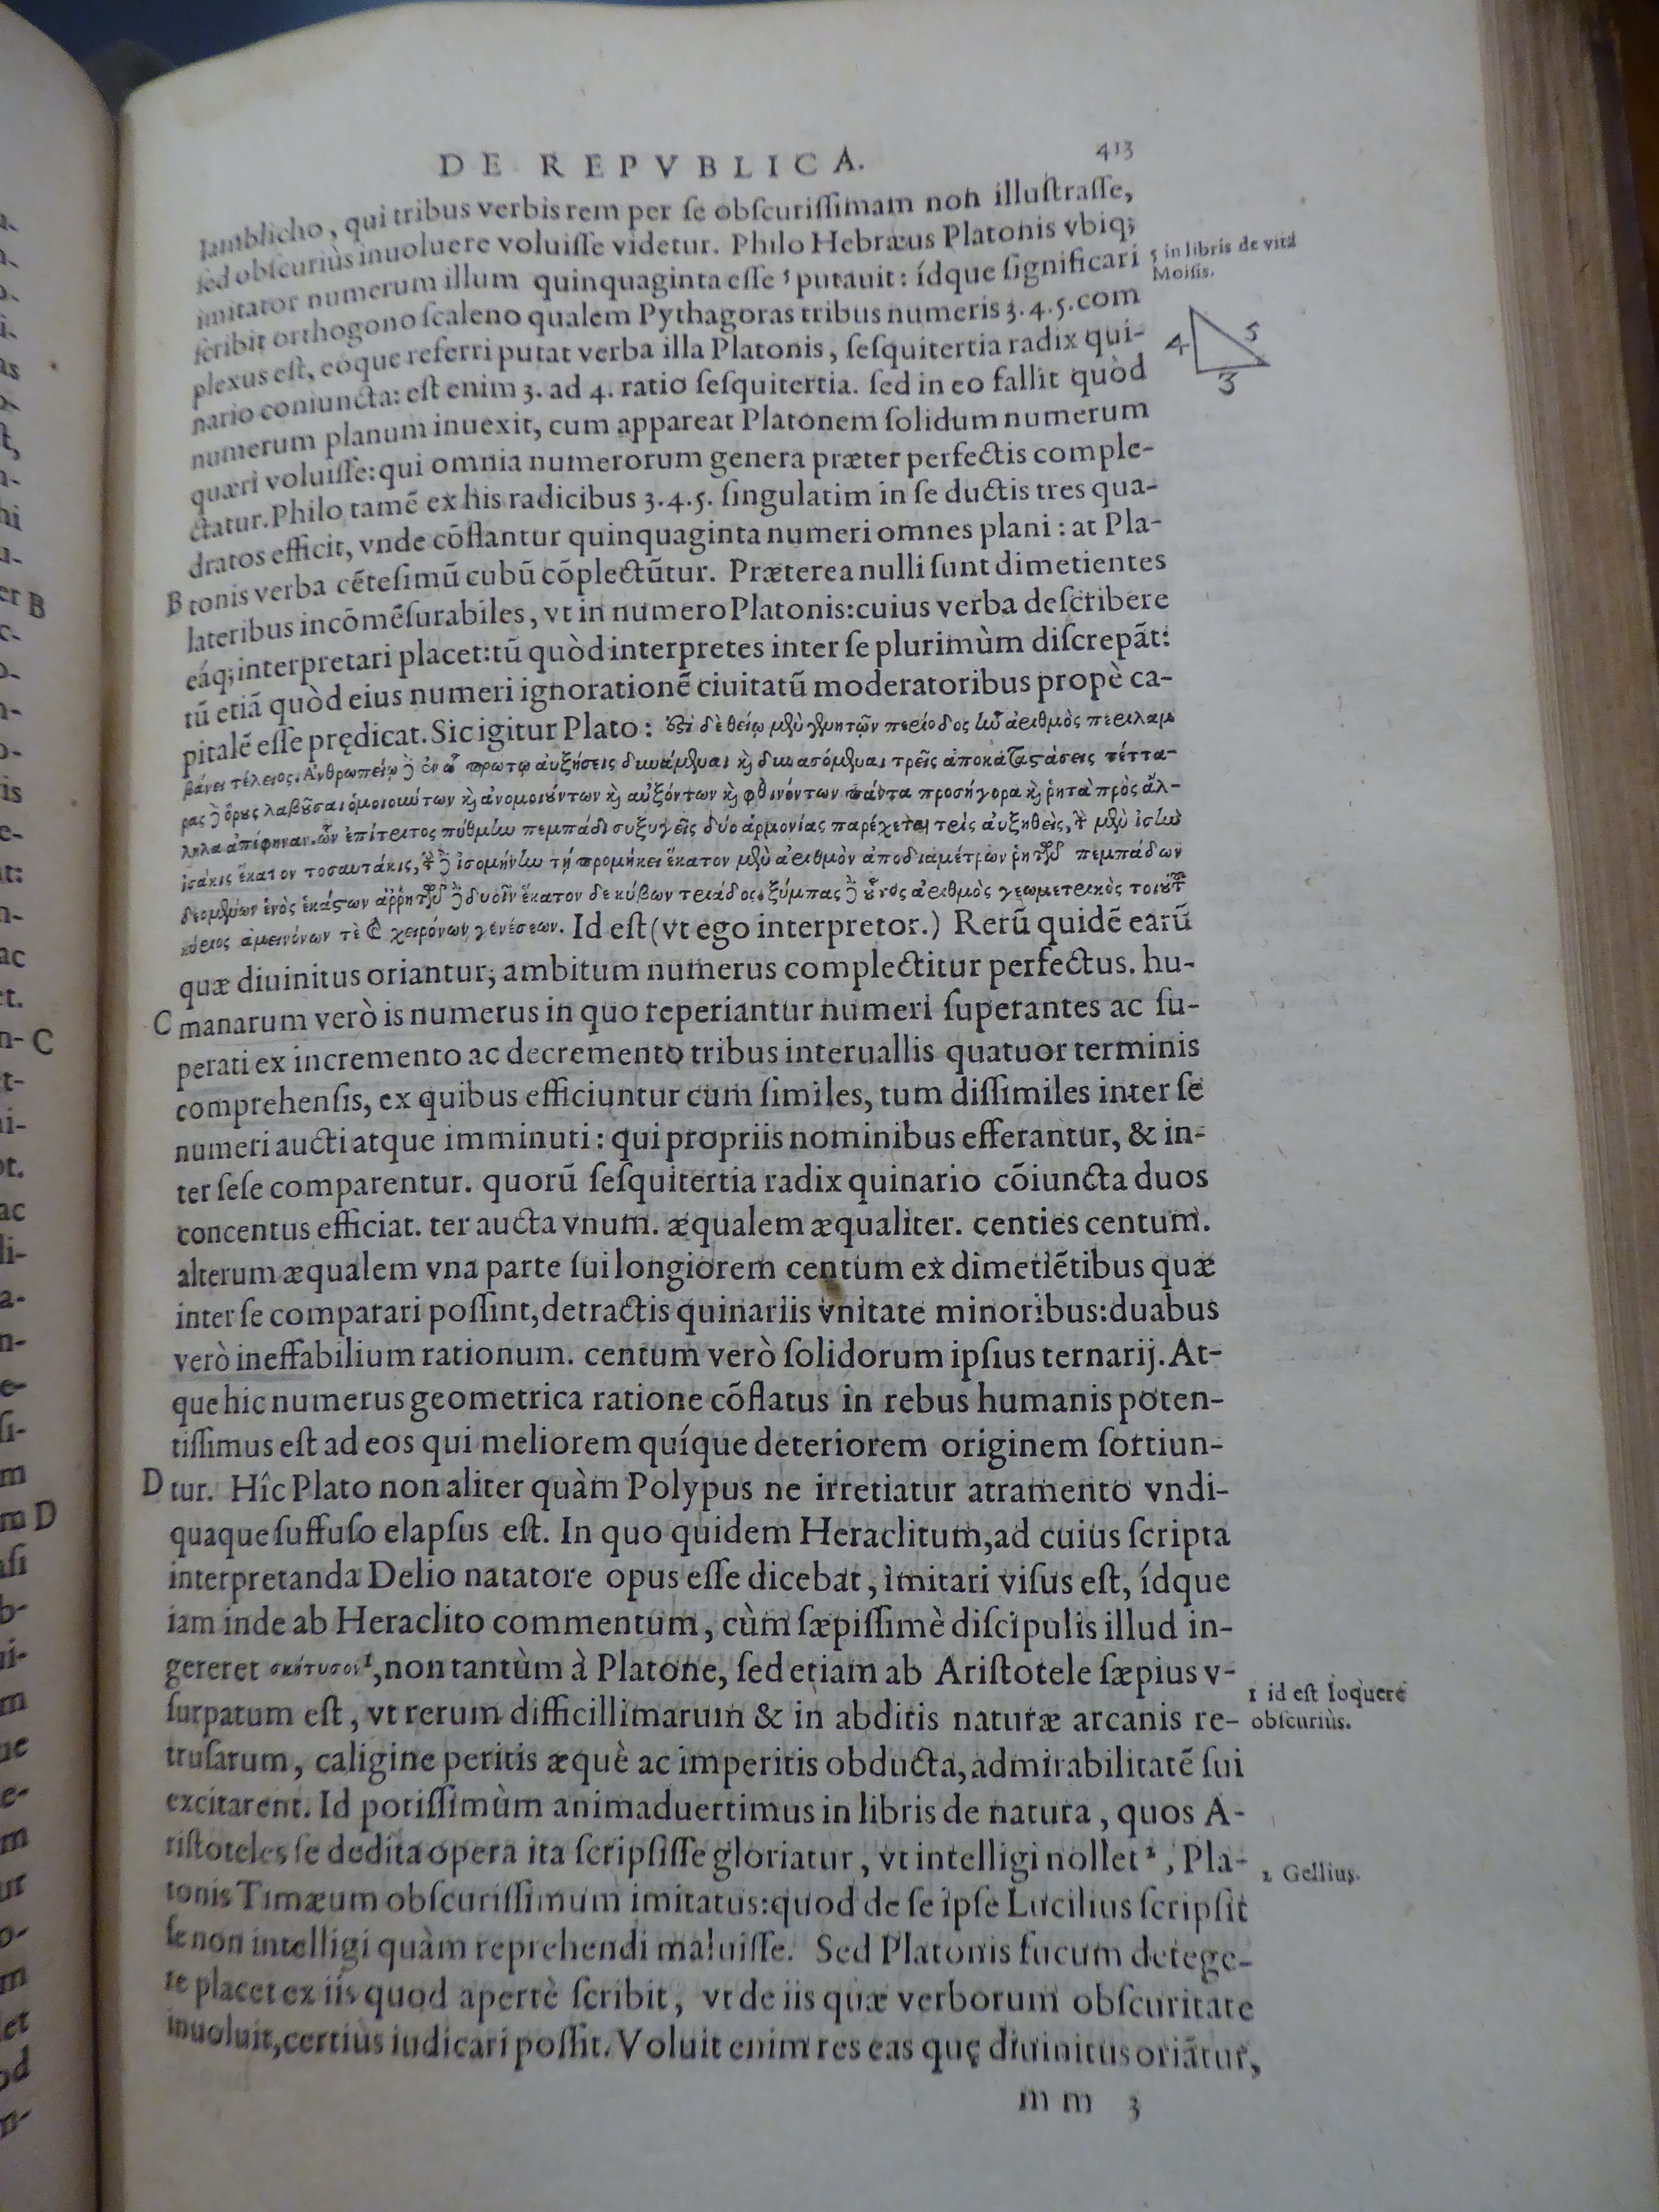 DE REPVBLICA. 413
Iamblicho, qui tribus verbis rem per ſe obſcuriſſimam non illuſtraſſe,
ſed obſcuriùs inuoluere voluiſſe videtur. Philo Hebræus Platonis vbiq;
imitator numerum illum quinquaginta eſſe ⁵ putauit: ídque ſignificari
ſcribit orthogono ſcaleno qualem Pythagoras tribus numeris 3.4.5.com
plexus eſt, eóque referri putat verba illa Platonis, ſeſquitertia radix qui-
nario coniuncta: eſt enim 3. ad 4. ratio ſeſquitertia. ſed in eo fallit quòd
numerum planum inuexit, cum appareat Platonem ſolidum numerum
quæri voluiſſe: qui omnia numerorum genera præter perfectis comple-
ctatur. Philo tamẽ ex his radicibus 3.4.5. ſingulatim in ſe ductis tres qua-
dratos efficit, vnde cõflantur quinquaginta numeri omnes plani: at Pla-
B tonis verba cẽteſimũ cubũ cõplectũtur. Præterea nulli ſunt dimetientes
lateribus incõmẽſurabiles, vt in numero Platonis: cuius verba deſcribere
eáq; interpretari placet: tũ quòd interpretes inter ſe plurimùm diſcrepãt:
tũ etiã quòd eius numeri ignorationẽ ciuitatũ moderatoribus propè ca-
pitalẽ eſſe prędicat. Sic igitur Plato: ἔϛι δὲ θείῳ μὲν γεννητῶν περίοδος ἣν ἀριθμὸς περιλαμ
βάνει τέλειος. Ἀνθρωπείῳ δὲ ἐν ᾧ πρωτῳ αὐξήσεις δυνάμεναι καὶ δυναςόμεναι τρεῖς ἀποκαταϛάσεις τέττα-
ρας δὲ ὅρους λαβοῦσαι ὁμοιούντων καὶ ἀνομοιούντων καὶ αὐξόντων καὶ φθινόντων πάντα προσήγορα καὶ ῥητὰ πρὸς ἄλ-
ληλα ἀπέφηναν. ὧν ἐπίτριτος πύθμην πεμπάδι συζυγεῖς δύο ἁρμονίας παρέχεται τρὶς αὐξηθεὶς, τὴν μὲν ἴσην
ἰσάκις ἕκατον τοσαυτάκις, τὴν δὲ ἰσομήκην τῇ προμήκει ἕκατον μὲν ἀριθμὸν ἀπὸ διαμέτρων ῥητῶν πεμπάδων
δεομένων ἑνὸς ἑκάϛων ἀῤῥήτων δὲ δυοῖν ἕκατον δὲ κύβων τριάδος. ξύμπας δὲ οὗτος ἀριθμὸς γεωμετρικὸς τοιούτων
κύριος ἀμεινόνων τὲ καὶ χειρόνων γενέσεων. Id eſt (vt ego interpretor.) Rerũ quidẽ earũ
quæ diuinitus oriantur, ambitum numerus complectitur perfectus. hu-
C manarum verò is numerus in quo reperiantur numeri ſuperantes ac ſu-
perati ex incremento ac decremento tribus interuallis quatuor terminis
comprehenſis, ex quibus efficiuntur cum ſimiles, tum diſſimiles inter ſe
numeri aucti atque imminuti: qui propriis nominibus efferantur, & in-
ter ſeſe comparentur. quorũ ſeſquitertia radix quinario cõiuncta duos
concentus efficiat. ter aucta vnum. æqualem æqualiter. centies centum.
alterum æqualem vna parte ſui longiorem centum ex dimetiẽtibus quæ
inter ſe comparari poſſint, detractis quinariis vnitate minoribus: duabus
verò ineffabilium rationum. centum verò ſolidorum ipſius ternarij. At-
que hic numerus geometrica ratione cõflatus in rebus humanis poten-
tiſſimus eſt ad eos qui meliorem quíque deteriorem originem ſortiun-
D tur. Hîc Plato non aliter quàm Polypus ne irretiatur atramento vndi-
quaque ſuffuſo elapſus eſt. In quo quidem Heraclitum, ad cuius ſcripta
interpretanda Delio natatore opus eſſe dicebat, imitari viſus eſt, ídque
iam inde ab Heraclito commentum, cùm ſæpiſſimè diſcipulis illud in-
gereret σκότυσον ¹, non tantùm à Platone, ſed etiam ab Ariſtotele ſæpius v-
ſurpatum eſt, vt rerum difficillimarum & in abditis naturæ arcanis re-
truſarum, caligine peritis æquè ac imperitis obducta, admirabilitatẽ ſui
excitarent. Id potiſſimùm animaduertimus in libris de natura, quos A-
riſtoteles ſe dedita opera ita ſcripſiſſe gloriatur, vt intelligi nollet ², Pla-
tonis Timæum obſcuriſſimum imitatus: quod de ſe ipſe Lucilius ſcripſit
ſe non intelligi quàm reprehendi maluiſſe. Sed Platonis fucum detege-
re placet ex iis quod apertè ſcribit, vt de iis quæ verborum obſcuritate
inuoluit, certius iudicari poſſit. Voluit enim res eas quę diuinitus oriãtur,
mm 3
5 in libris de vita
Moiſis.
4 5
3
1 id eſt loquere
obſcuriùs.
2 Gellius.
B
C
D